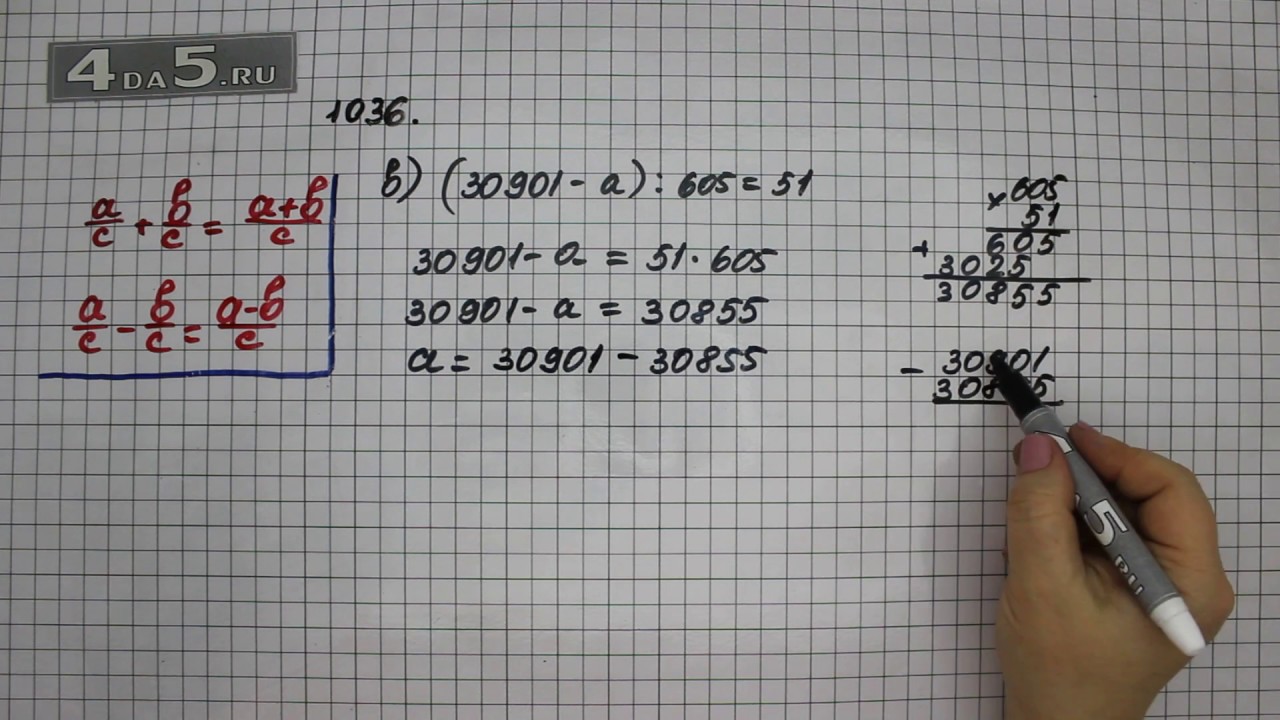 4DA5.RU
1036.
a/c + b/c = a+b/c
a/c - b/c = a-b/c
в) (30901 - a) : 605 = 51
30901 - a = 51 · 605
30901 - a = 30855
a = 30901 - 30855
× 605
51
+ 605
3025
30855
- 30901
30855
5
RU